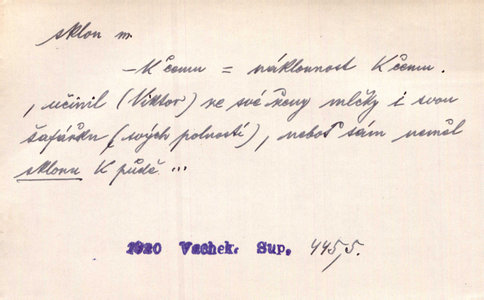 sklon m.
- K čemu = náklonnost K čemu.
, učinil (Viktor) ze své ženy mlčky i svou
šafářku (svých polností), neboť sám neměl
sklonu K půdě ...
1920 Vachek. Sup. 445,5.